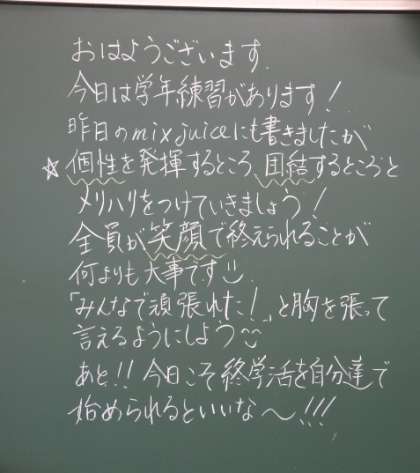 おはようございます.
今日は学年練習があります!
昨日のmix juiceにも書きましたが
☆個性を発揮するところ、団結するところと
メリハリをつけていきましょう!
全員が笑顔で終えられることが
何よりも大事です
「みんなで頑張れた!」と胸を張って
言えるようにしよう
あと!!今日こそ終学活を自分達で
始められるといいな〜!!!